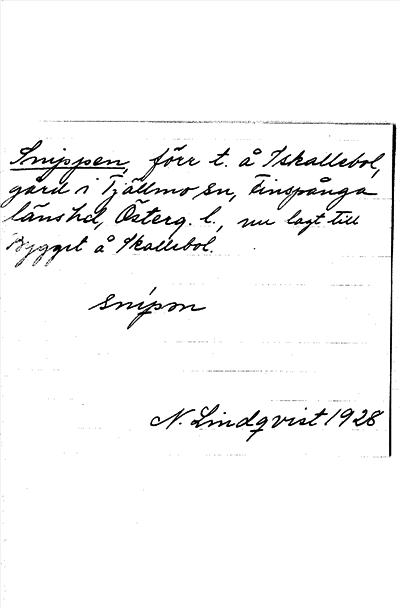 Snippen, förr t. å Skallebol,
gård i Tjällmo sn, Finspånga
länshd, Österg. l., nu lagt till
Bygget å Skallebol.
snipən
N. Lindqvist 1928